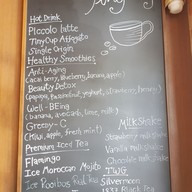 Hot Drink
Piccolo latte
Tiny Cup Affogato
Single Origin
Healthy Smoothies
Anti-Aging
(Acai berry, blueberry, banana, apple)
Beauty Detox
(papaya, yoghurt, strawberry,
Well-BEing
(banana, avocado, lime, milk)
Greeny-G
(Kiwi, apple, fresh mint)
Premium Iced Tea
Flamingo
Ice Moroccan Mojito
Ice Rooibos Red Tea
MilkShake
Strawberry milk shake
Vanilla milk shake
Chocolate milk shake
TWG
Silvermoon
1837 Black Tea